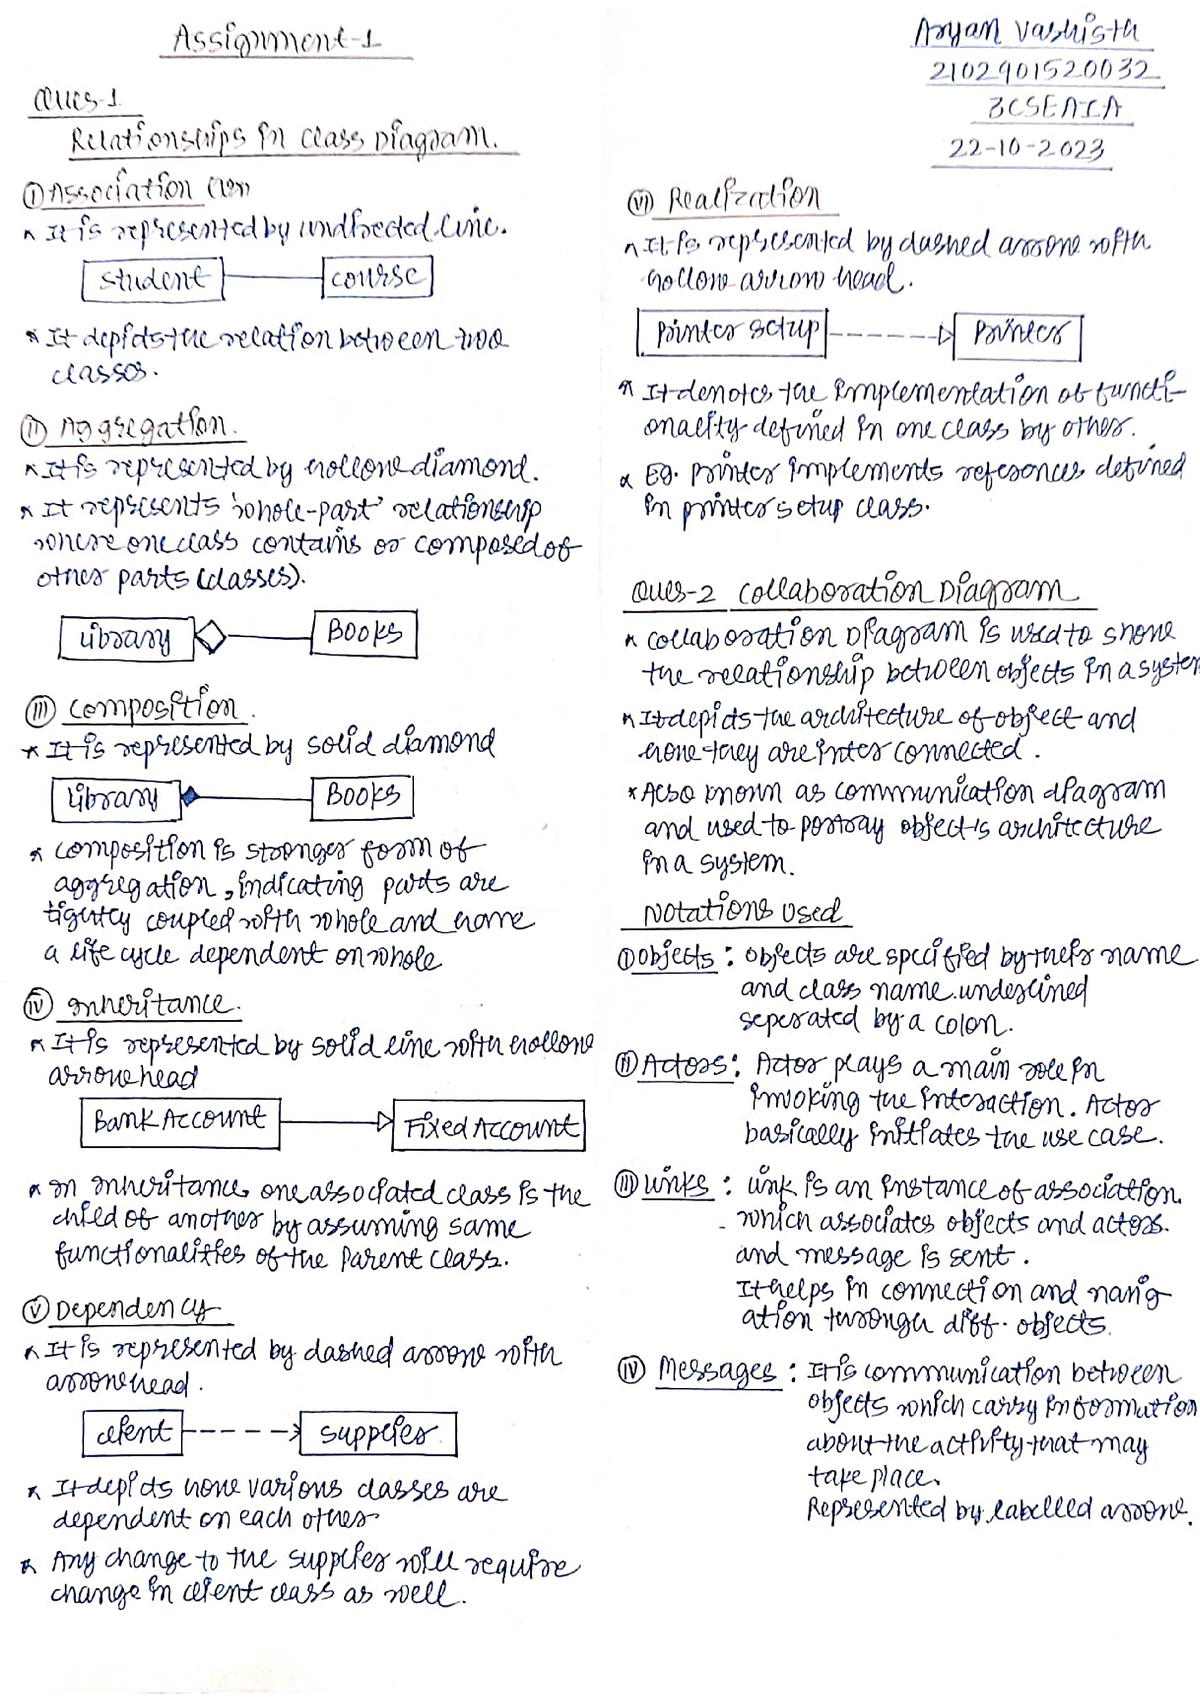 Assignment-1
Ques-1
Relationships in Class Diagram.
(I) Association
* It is represented by undirected line.
Student
course
* It depicts the relation between two
classes.
(II) Aggregation.
* It is represented by hollow diamond.
* It represents 'whole-part' relationship
where one class contains or composed of
other parts (classes).
Library
Books
(III) Composition.
* It is represented by solid diamond
Library
Books
* composition is stronger form of
aggregation, indicating parts are
tightly coupled with whole and have
a life cycle dependent on whole
(IV) Inheritance.
* It is represented by solid line with hollow
arrow head
Bank Account
Fixed Account
* In Inheritance, one associated class is the
child of another by assuming same
functionalities of the Parent class.
(V) Dependency
* It is represented by dashed arrow with
arrowhead.
client
supplier
* It depicts how various classes are
dependent on each other
* Any change to the supplier will require
change in client class as well.
Aryan Vashisth
2102901520032
3CSEAIA
22-10-2023
(VI) Realization
* It is represented by dashed arrow with
hollow arrow head.
Printer setup
Printer
* It denotes the implementation of functi-
onality defined in one class by other.
* Eg. Printer implements references defined
in printer setup class.
Ques-2 Collaboration Diagram
* Collaboration Diagram is used to show
the relationship between objects in a system
* It depicts the architecture of object and
how they are inter connected.
* Also known as communication diagram
and used to portray object's architecture
in a system.
Notations Used
(I) Objects : Objects are specified by their name
and class name underlined
seperated by a colon.
(II) Actors : Actor plays a main role in
invoking the interaction. Actor
basically initiates the use case.
(III) Links : Link is an instance of association.
which associates objects and actors.
and message is sent.
It helps in connection and navig-
ation through diff. objects.
(IV) Messages : It is communication between
objects which carry information
about the activity that may
take place.
Represented by labelled arrow.